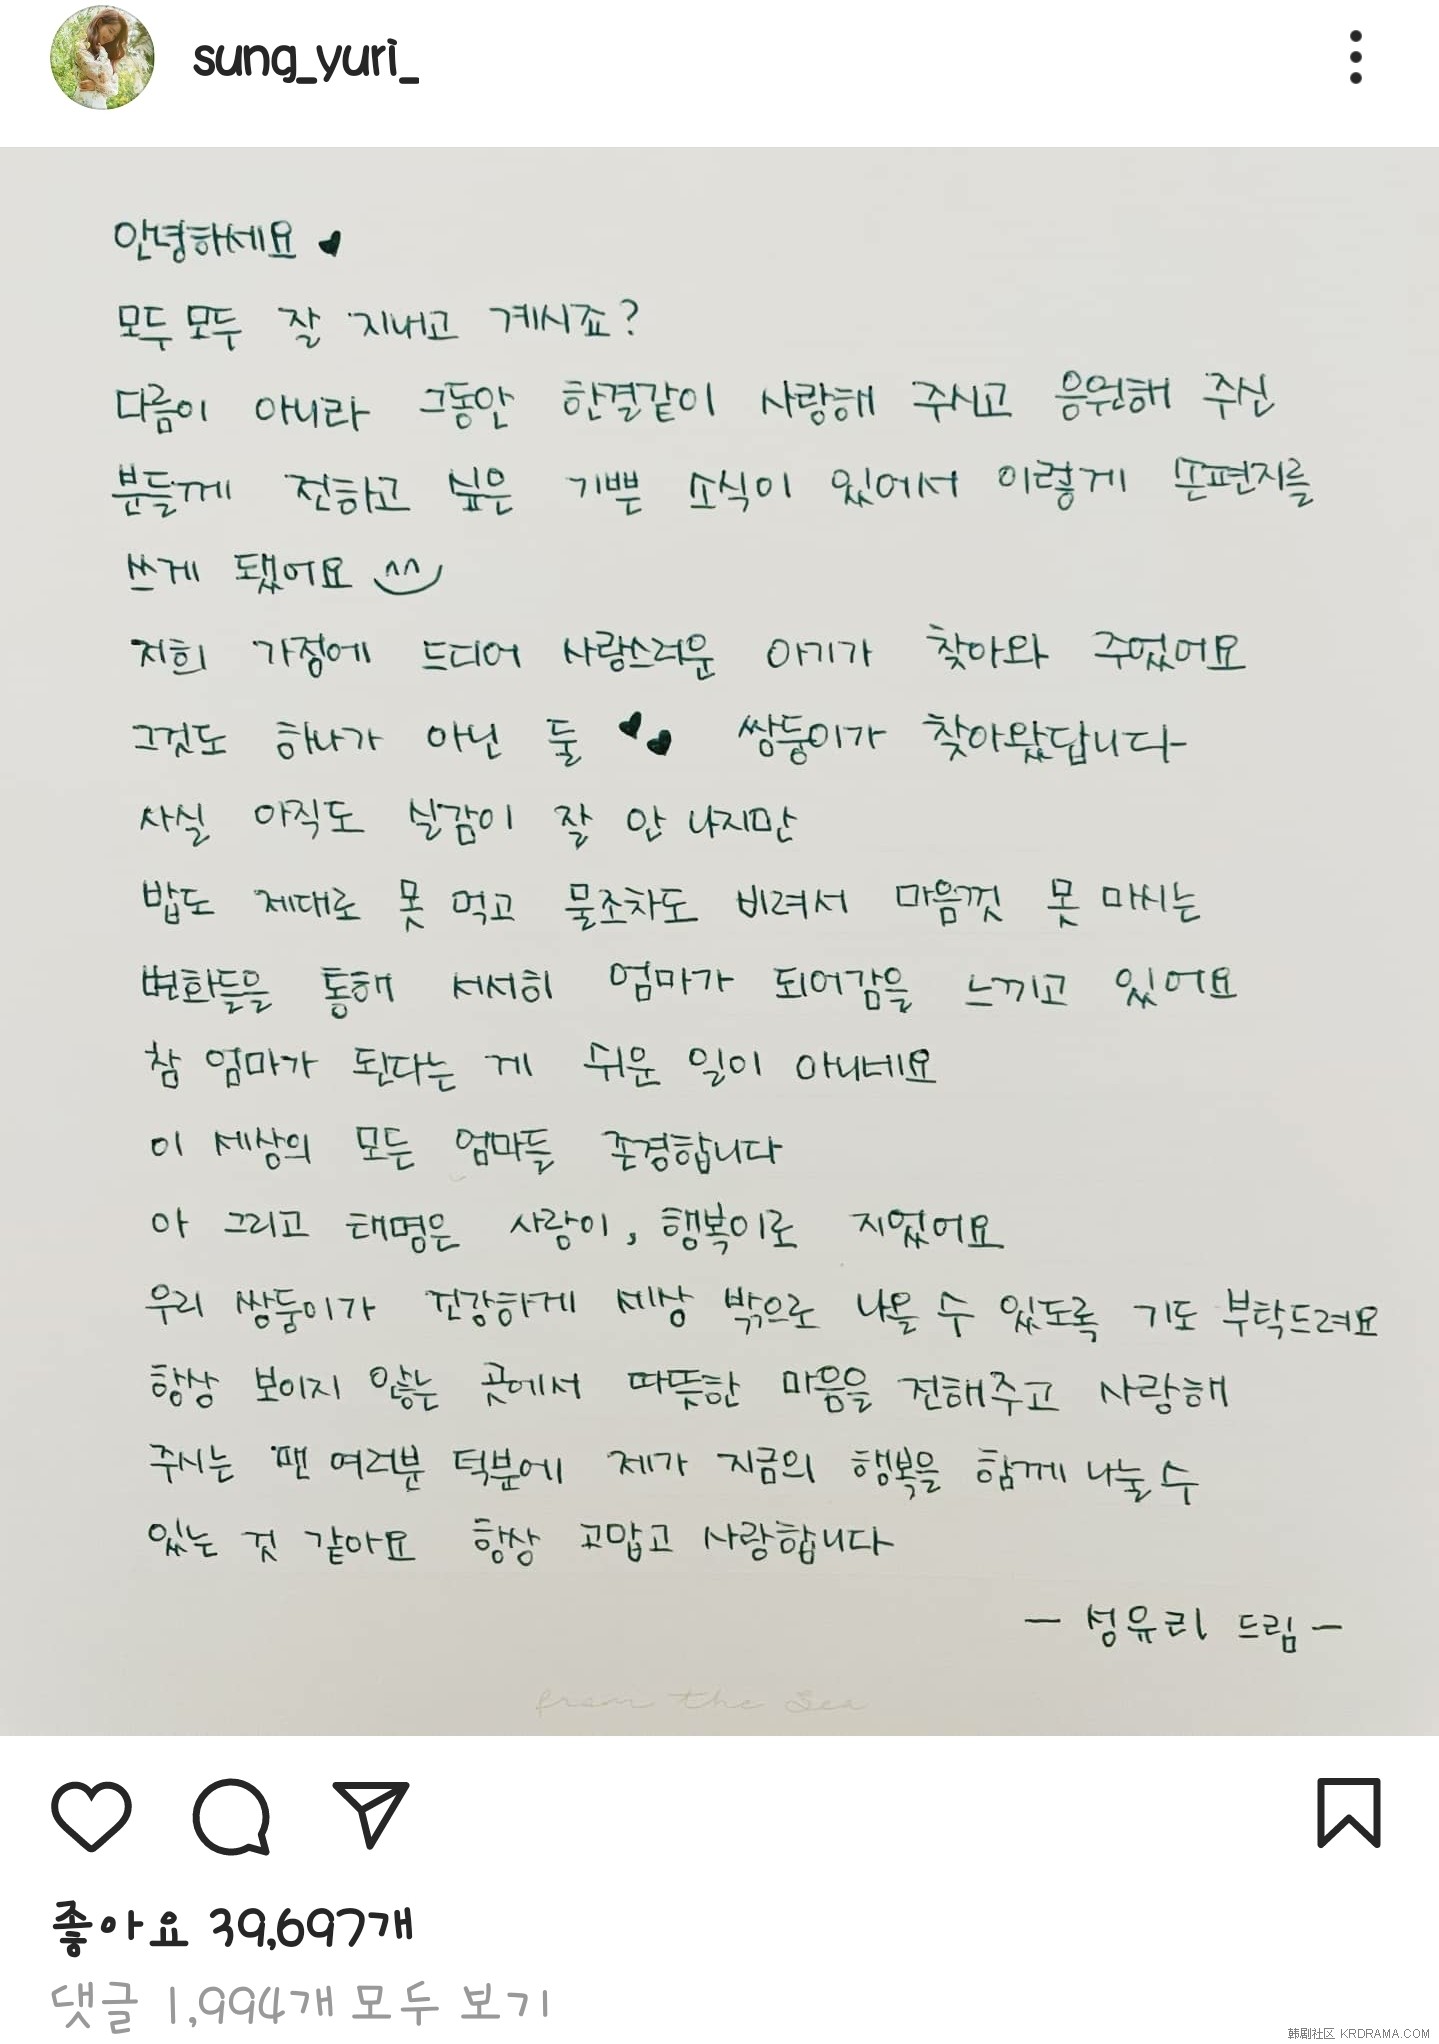 sung_yuri_
안녕하세요 ♥
모두 모두 잘 지내고 계시죠?
다름이 아니라 그동안 한결같이 사랑해 주시고 응원해 주신
분들께 전하고 싶은 기쁜 소식이 있어서 이렇게 손편지를
쓰게 됐어요 ^^
저희 가정에 드디어 사랑스러운 아기가 찾아와 주었어요
그것도 하나가 아닌 둘 ♥♥ 쌍둥이가 찾아왔답니다
사실 아직도 실감이 잘 안 나지만
밥도 제대로 못 먹고 물조차도 비려서 마음껏 못 마시는
변화들을 통해 서서히 엄마가 되어감을 느끼고 있어요
참 엄마가 된다는 게 쉬운 일이 아니네요
이 세상의 모든 엄마들 존경합니다
아 그리고 태명은 사랑이, 행복이로 지었어요
우리 쌍둥이가 건강하게 세상 밖으로 나올 수 있도록 기도 부탁드려요
항상 보이지 않는 곳에서 따뜻한 마음을 전해주고 사랑해
주시는 팬 여러분 덕분에 제가 지금의 행복을 함께 나눌 수
있는 것 같아요 항상 고맙고 사랑합니다
- 성유리 드림 -
from the Sea
좋아요 39,697개
댓글 1,994개 모두 보기
韩剧社区 KRDRAMA.COM